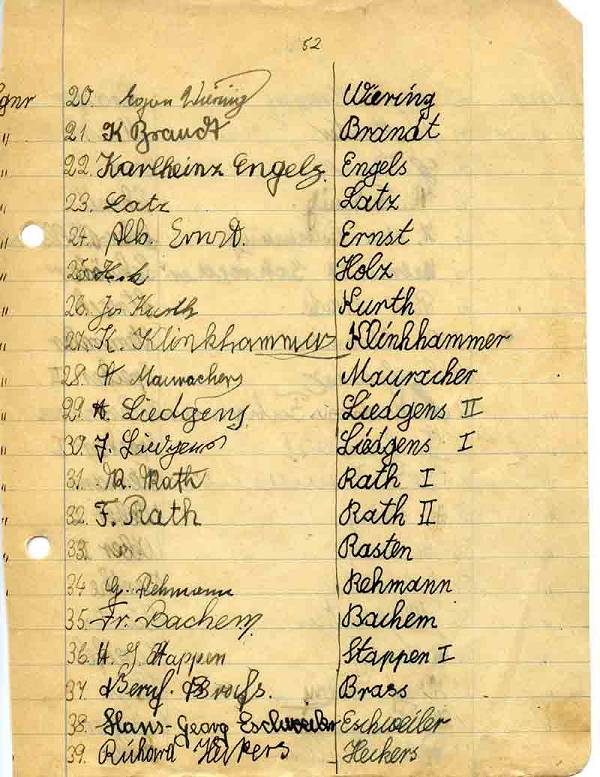 52
gnr 20. Egon Wiering Wiering
" 21. K Brandt Brandt
" 22. Karlheinz Engels. Engels
" 23. Latz Latz
" 24. Alb. Ernst. Ernst
" 25. Holz
" 26. Jos Kurth Kurth
" 27. K. Klinkhammer Klinkhammer
" 28. Mauracher Mauracher
" 29. A. Liedgens Liedgens II
" 30. J. Liedgens Liedgens I
" 31. Rath Rath I
" 32. F. Rath Rath II
" 33. Rasten
" 34 G. Rehmann Rehmann
" 35. Fr. Bachem. Bachem
36. H. J Stappen Stappen I
37. Brass
38. Hans-Georg Eschweiler Eschweiler
39. Richard Heckers Heckers